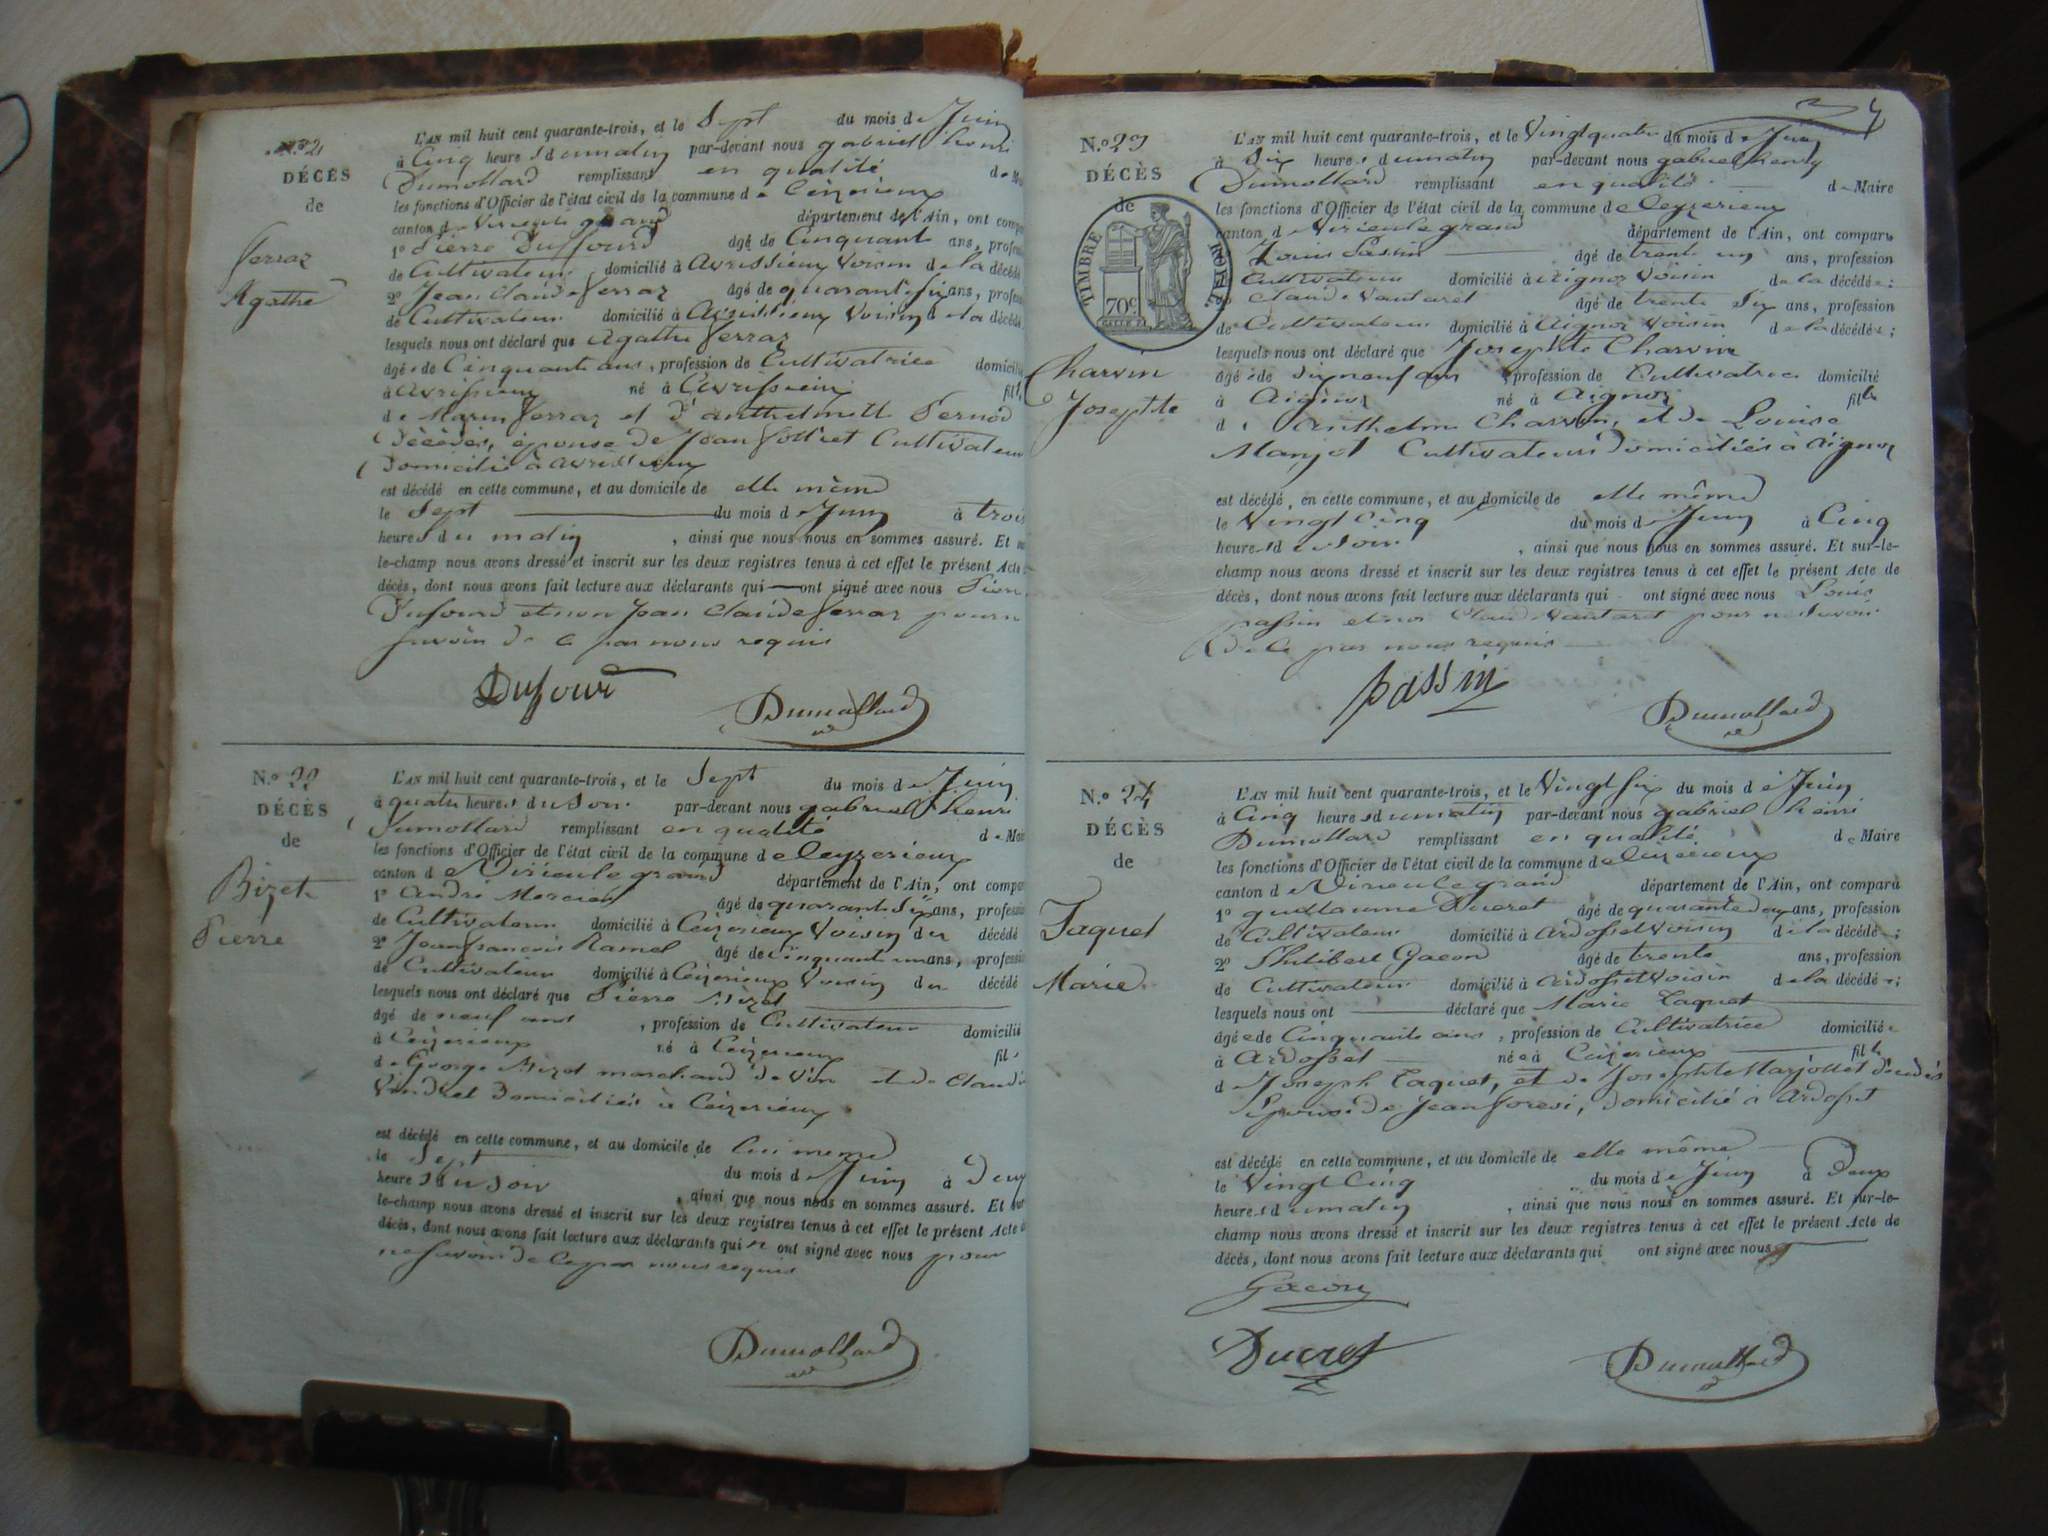 N.º 21
DÉCÈS
de
Ferraz
Agathe
L'AN mil huit cent quarante-trois, et le Sept du mois de Juin
à Cinq heures du matin par-devant nous gabriel henri
Dumollard remplissant en qualité de Mai
les fonctions d'Officier de l'état civil de la commune de Ceizerieux
canton de Virieule grand département de l'Ain, ont compa
1º Pierre Duffourd âgé de Cinquant ans, profess
de Cultivateur domicilié à Avrissieux Voisin de la décédé
2º Jean Claude ferraz âgé de quarant six ans, profess
de Cultivateur domicilié à Avrissieux Voisin de la décédé
lesquels nous ont déclaré que Agathe ferraz
âgé e de Cinquante ans, profession de Cultivatrice domicilié
à Avrissieux né à Avrissieux fille
de Marin ferraz et d'anthelmette Pernod
Décédés, épouse de Jean Cultivateur
Domicilié à avrissieux
est décédé en cette commune, et au domicile de elle même
le Sept du mois de Juin à trois
heures du matin, ainsi que nous nous en sommes assuré. Et
le-champ nous avons dressé et inscrit sur les deux registres tenus à cet effet le présent Acte
décès, dont nous avons fait lecture aux déclarants qui ont signé avec nous Pierre
Dufourd et non Jean Claude ferraz pour n
savoir de ce par nous requis
Dufourd
Dumollard
N.º 22
DÉCÈS
de
Bizet
Pierre
L'AN mil huit cent quarante-trois, et le Sept du mois de Juin
à quatre heures du soir par-devant nous gabriel henri
Dumollard remplissant en qualité de Mai
les fonctions d'Officier de l'état civil de la commune de Ceyzerieux
canton de Virieule grand département de l'Ain, ont compa
1º andré Mercier âgé de quarante six ans, professi
de Cultivateur domicilié à Ceizerieux Voisin du décédé
2º Jean francois Ramel âgé de Cinquant un ans, professi
de Cultivateur domicilié à Ceizerieux Voisin du décédé
lesquels nous ont déclaré que Pierre Bizet
âgé de neuf ans, profession de Cultivateur domicilié
à Ceizerieux né à Ceizerieux fils
de George Bizet marchand de Vin et de Claudi
Domiciliés à Ceizerieux
est décédé en cette commune, et au domicile de lui meme
le Sept du mois de Juin à Deux
heures du soir, ainsi que nous nous en sommes assuré. Et sur
le-champ nous avons dressé et inscrit sur les deux registres tenus à cet effet le présent Acte
décès, dont nous avons fait lecture aux déclarants qui n ont signé avec nous pour
ne savoir de ce par nous requis
Dumollard
N.º 23
DÉCÈS
de
TIMBRE ROYAL
70c
Charvin
Josephte
L'AN mil huit cent quarante-trois, et le Vingt quatre du mois de Juin
à Six heures du matin par-devant nous gabriel henry
Dumollard remplissant en qualité de Maire
les fonctions d'Officier de l'état civil de la commune de Ceyzerieux
canton de Virieule grand département de l'Ain, ont comparu
Louis Passin âgé de trent un ans, profession
Cultivateur domicilié à Aignoz Voisin de la décédée;
Claude Vautaret âgé de trente Six ans, profession
de Cultivateur domicilié à Aignoz Voisin de la décédée;
lesquels nous ont déclaré que Josephte Charvin
âgé e de dix neuf ans, profession de Cultivatrice domicilié
à Aignoz né à Aignoz fille
de Anthelme Charvin, et de Louise
Manjot Cultivateurs Domiciliés à Aignoz
est décédé, en cette commune, et au domicile de elle même
le Vingt Cinq du mois de Juin à Cinq
heures du Soir, ainsi que nous nous en sommes assuré. Et sur-le-
champ nous avons dressé et inscrit sur les deux registres tenus à cet effet le présent Acte de
décès, dont nous avons fait lecture aux déclarants qui ont signé avec nous Louis
passin et non Claude Vautaret pour ne Savoir
de ce par nous requis
passin
Dumollard
N.º 24
DÉCÈS
de
Taquet
Marie
L'AN mil huit cent quarante-trois, et le Vingt Six du mois de Juin
à Cinq heures du matin par-devant nous gabriel henri
Dumollard remplissant en qualité de Maire
les fonctions d'Officier de l'état civil de la commune de Ceizerieux
canton de Virieule grand département de l'Ain, ont comparu
1º guillaume Ducret âgé de quarante deux ans, profession
de Cultivateur domicilié à Ardosset Voisin de la décédée;
2º Philibert Gacon âgé de trente ans, profession
de Cultivateur domicilié à Ardosset Voisin de la décédée;
lesquels nous ont déclaré que Marie Taquet
âgée de Cinquante ans, profession de Cultivatrice domiciliée
à Ardosset née à Ceizerieux fille
de Joseph Taquet, et de Josephte Marjollet décédés
Epouse de Jean forest, domicilié à Ardosset
est décédé en cette commune, et au domicile de elle même
le Vingt Cinq du mois de Juin à Deux
heures du matin, ainsi que nous nous en sommes assuré. Et sur-le-
champ nous avons dressé et inscrit sur les deux registres tenus à cet effet le présent Acte de
décès, dont nous avons fait lecture aux déclarants qui ont signé avec nous
Gacon
Ducret
Dumollard